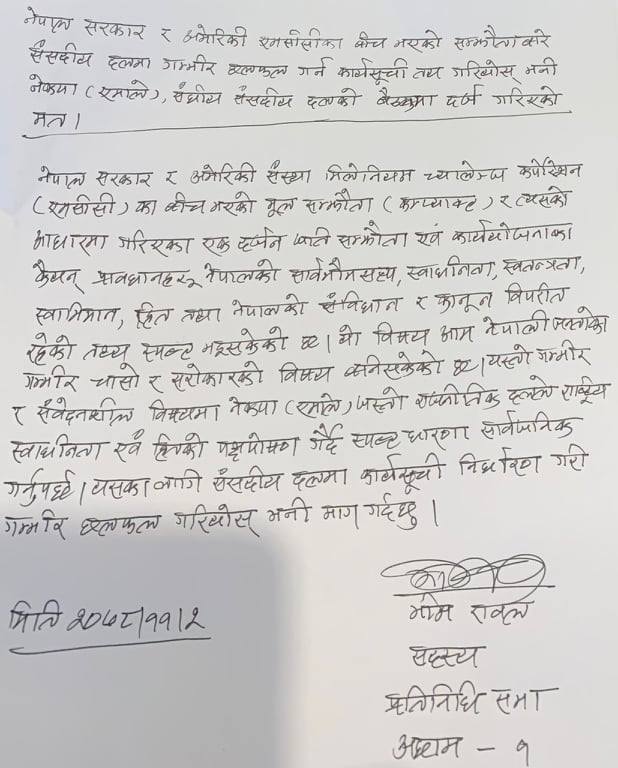 नेपाल सरकार र अमेरिकी एमसीसीका बीच भएको सम्झौता बारे
संसदीय दलमा गम्भीर छलफल गर्न कार्यसूची तय गरियोस् भनी
नेकपा (एमाले), संघीय संसदीय दलको बैठकमा दर्ज गरिएको
मत।
नेपाल सरकार र अमेरिकी संस्था मिलेनियम च्यालेञ्ज कर्पोरेसन
(एमसीसी) का बीच भएको मूल सम्झौता (कम्प्याक्ट) र त्यसको
आधारमा गरिएका एक दर्जन जति सम्झौता एवं कार्ययोजनाका
कैयन् प्रावधानहरू नेपालको सार्वभौमसत्ता, स्वाधीनता, स्वतन्त्रता,
स्वाभिमान, हित तथा नेपालको संविधान र कानून विपरीत
रहेको तथ्य स्पष्ट भइसकेको छ। यो विषय आम नेपाली जनताको
गम्भीर चासो र सरोकारको विषय बनिसकेको छ। यस्तो गम्भीर
र संवेदनशील विषयमा नेकपा (एमाले) जस्तो राजनीतिक दलले राष्ट्रिय
स्वाधीनता एवं हितको पक्षपोषण गर्दै स्पष्ट धारणा सार्वजनिक
गर्नुपर्छ। यसका लागि संसदीय दलमा कार्यसूची निर्धारण गरी
गम्भीर छलफल गरियोस् भनी माग गर्दछु।
भीम रावल
मिति २०७८।११।२
सदस्य
प्रतिनिधि सभा
अछाम - १